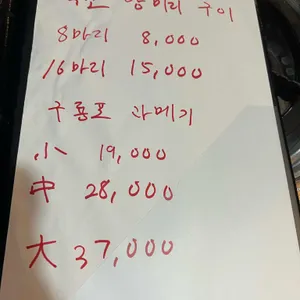 양미리 구이
8마리 8,000
16마리 15,000
구룡포 과메기
小 19,000
中 28,000
大 37,000